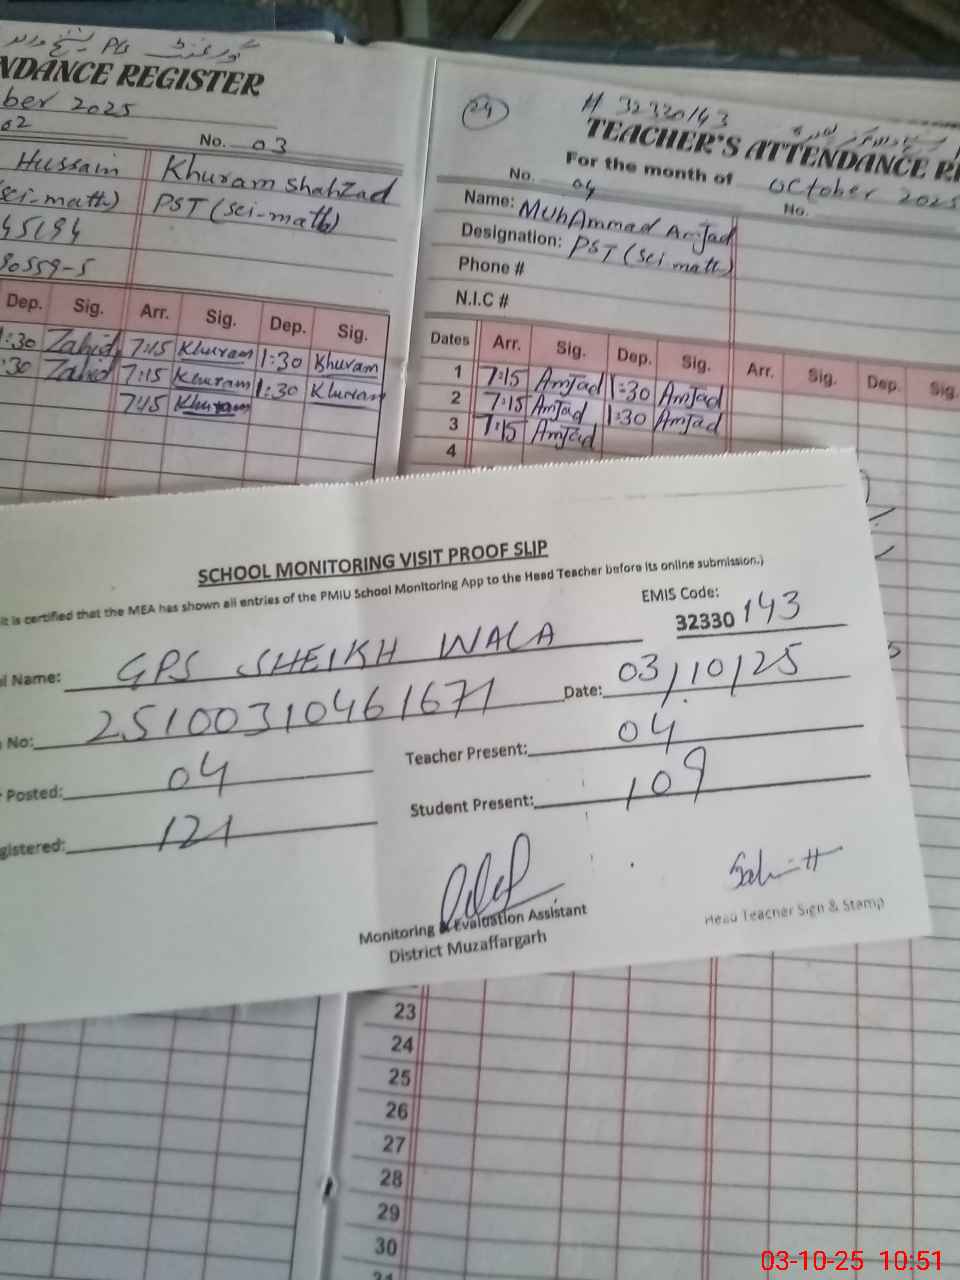 گورنمنٹ
PG
NDANCE REGISTER
ber 2025
02
No. 03
Hussain
Khuram Shahzad
(sci-math)
PST (sci-math)
45194
90559-5
Dep. Sig. Arr. Sig. Dep. Sig.
1:30 Zahid 7:15 Khuram 1:30 Khuram
:30 Zahid 7:15 Khuram 1:30 Khuram
7:15 Khuram
24
# 32320143
TEACHER'S ATTENDANCE RE
For the month of October 2025
No. 04
No.
Name: MUhAmmad AmJad
Designation: PST (sci math)
Phone #
N.I.C #
Dates Arr. Sig. Dep. Sig. Arr. Sig. Dep. Sig.
1 7:15 AmJad 1:30 AmJad
2 7:15 AmJad 1:30 AmJad
3 7:15 AmJad
4
SCHOOL MONITORING VISIT PROOF SLIP
it is certified that the MEA has shown all entries of the PMIU School Monitoring App to the Head Teacher before its online submission.)
EMIS Code:
32330143
l Name: GPS SHEIKH WALA
No: 25100310461671
Date: 03/10/25
Posted: 04
Teacher Present: 04
gistered: 121
Student Present: 109
Monitoring & Evaluation Assistant
District Muzaffargarh
Head Teacher Sign & Stamp
23
24
25
26
27
28
29
30
31
03-10-25 10:51